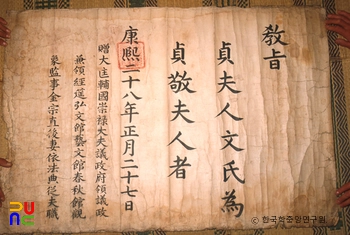 敎旨
貞夫人文氏為
貞敬夫人者
康熙二十八年正月二十七日
贈大匡輔國崇祿大夫議政府領議政
兼領經筵弘文館藝文館春秋館觀
象監事金宗直後妻依法典從夫職
© 한국학중앙연구원